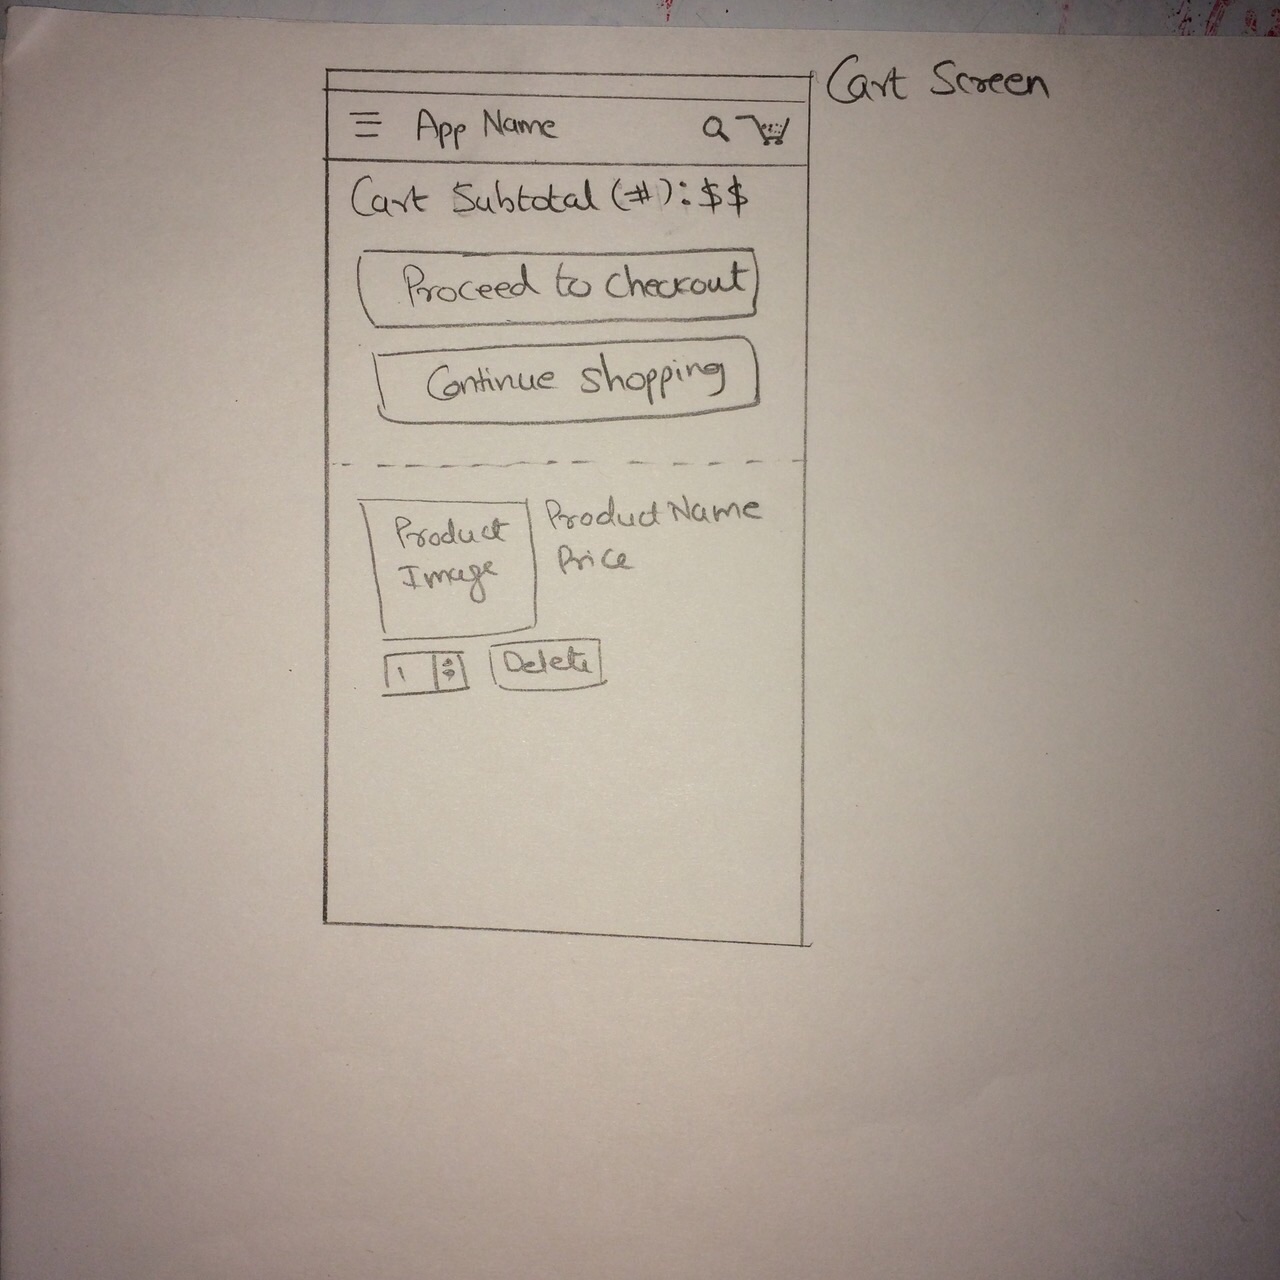 Cart Screen
App Name
Cart Subtotal (#): $$
Proceed to checkout
Continue shopping
Product
Image
Product Name
Price
1
Delete